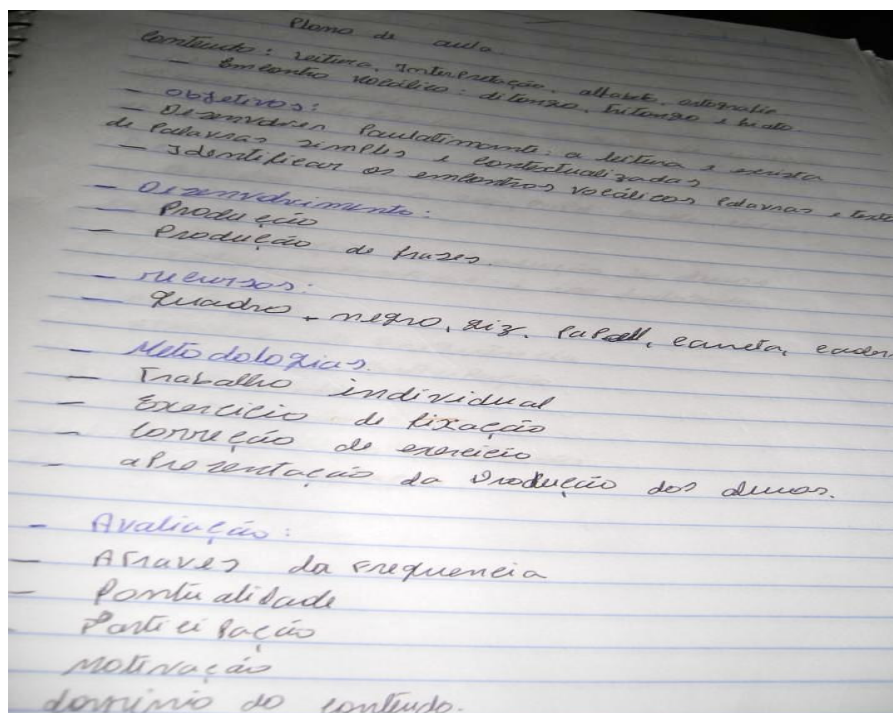 Plano de aula
Conteudo: Leitura, Interpretação, alfabeto, ortografia
- Encontro vocálico: ditongo, tritongo e hiato.
- objetivos:
- Desenvolver Paulatinamente a leitura e escrita
de Palavras simples e contextualizadas
- Identificar os encontros vocálicos Palavras e texto
- Desenvolvimento:
- Produção
- Produção de frazes.
- recursos:
quadro-negro, giz, Papel, caneta, cadern
- Metodologias.
- Trabalho individual
- Exercicio de fixação
- Correção de exercicio
- apresentação da Produção dos alunos.
- Avaliação:
- Atraves da Frequencia
- Pontualidade
- Participação
Motivação
dominio do conteudo.